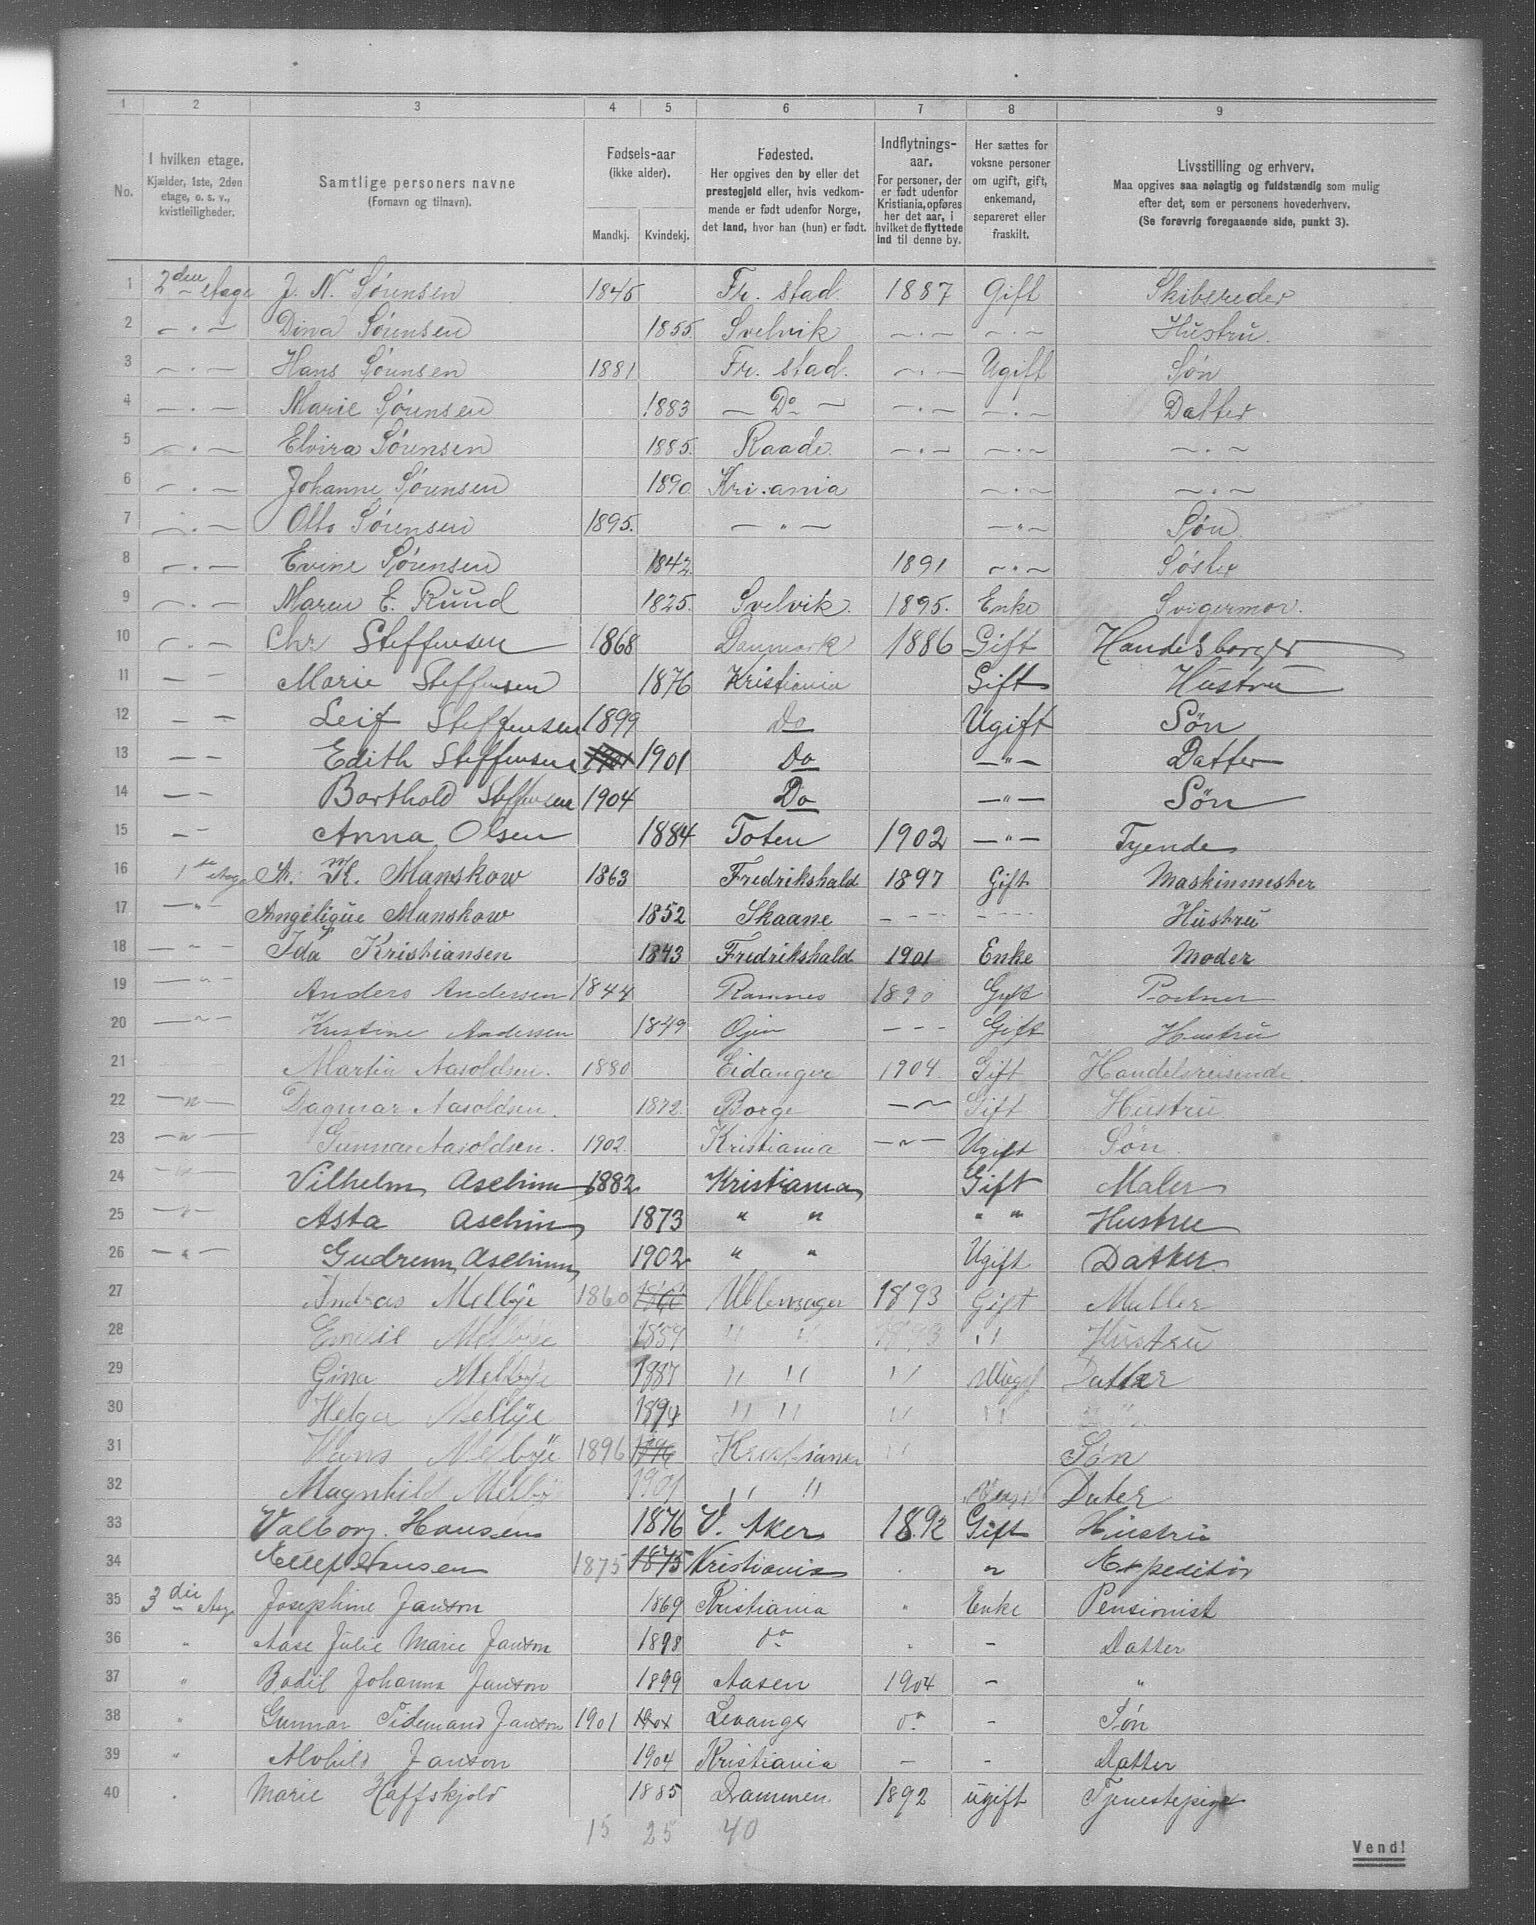 1 2 3 4 5 6 7 8 9
No.
I hvilken etage.
Kjælder, 1ste, 2den
etage, o. s. v.,
kvistleiligheder.
Samtlige personers navne
(Fornavn og tilnavn).
Fødsels-aar
(ikke alder).
Mandkj. Kvindekj.
Fødested.
Her opgives den by eller det
prestegjeld eller, hvis vedkom-
mende er født udenfor Norge,
det land, hvor han (hun) er født.
Indflytnings-
aar.
For personer, der
er født udenfor
Kristiania, opføres
her det aar, i
hvilket de flyttede
ind til denne by.
Her sættes for
voksne personer
om ugift, gift,
enkemand,
separeret eller
fraskilt.
Livsstilling og erhverv.
Maa opgives saa nøiagtig og fuldstændig som mulig
efter det, som er personens hovederhverv.
(Se forøvrig foregaaende side, punkt 3).
1 2den etage J. N. Sørensen 1845 Fr. stad. 1887 Gift Skibsreder
2 — . — Dina Sørensen 1855. Svelvik — . — — . — Hustru.
3 — . — Hans Sørensen 1881 Fr. stad. — . — Ugift Søn
4 — . — Marie Sørensen 1883 — Do — — . — — . — Datter
5 — . — Elvira Sørensen 1885. Raade. — . — — . — — . —
6 — . — Johanne Sørensen 1890 Kri.ania — . — — . —
7 — . — Otto Sørensen 1895. — " — — " — Søn
8 — . — Evine Sørensen 1842. 1891 — . — Søster
9 — . — Maren E. Ruud 1825. Svelvik 1895. Enke Svigermor.
10 — . — Chr Steffensen 1868 Danmark 1886 Gift Handelsborger
11 — — Marie Steffensen 1876 Kristiania Gift Hustru
12 — — Leif Steffensen 1899 Do Ugift Søn
13 — — Edith Steffensen 1901 1901 Do — " — Datter
14 — — Borthold Steffensen 1904 Do — " — Søn
15 — — Anna Olsen 1884 Toten 1902 — " — Tyende
16 1ste Etage A. M. K. Manskow 1863 Fredrikshald 1897 Gift Maskinmester
17 — " — Angelique Manskow 1852 Skaane - - - - - - - Hustru
18 — " — Ida Kristiansen 1843 Fredrikshald 1901 Enke Moder
19 — " Anders Andersen 1844 Ramnes 1890 Gift Portner
20 — " — Kristine Andersen 1849 - - - Gift Hustru
21 Martin Aasoldsen. 1880 Eidanger 1904 Gift Handelsreisende.
22 — " — Dagmar Aasoldsen. 1872. Borge — " — Gift Hustru
23 — " — Gunnar Aasoldsen. 1902 Kristiania — " — Ugift Søn.
24 — " — Vilhelm Aschim 1882 Kristiania Gift Maler
25 — " — Asta Aschim 1873 " " " " Hustru
26 — " — Gudrunn Aschim 1902 " " Ugift Datter.
27 Andras Melbye 1860 1860 Ullensager 1893 Gift Muller
28 Emilie Melbye 1859 " " 1893 " Hustru
29 Gina Melbye 1887 " " " Ugift Datter
30 Helga Melbye 1894 " " " " " "
31 Hans Melbye 1896 1896 Kristiania " Søn
32 Magnhild Melbye 1901 " " Dater
33 Valborg. Hansen 1876 V. Aker 1892 Gift Hustru
34 Ellef Hansen 1875 1875 Kristiania . " Expeditør
35 3die Etg. Josephine Janson 1869 Kristiania " Enke Pensionist
36 " Aase Julie Marie Janson 1898 do " - Datter
37 " Bodil Johanna Janson 1899 Aasen 1904 - "
38 " Gunnar Tidemand Janson 1901 1901 Levanger do - Søn
39 " Alvhild Janson 1904 Kristiania — - Datter
40 . Marie Haffskjold 1885 Drammen 1892 ugift Tjenestepige
15 25 40
Vend!